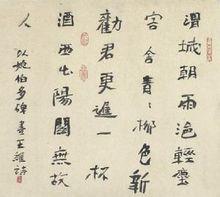 渭城朝雨浥輕塵
客舍青〻柳色新
勸君更進一杯
酒西出陽關無故
人
以姚伯多碑書王維詩